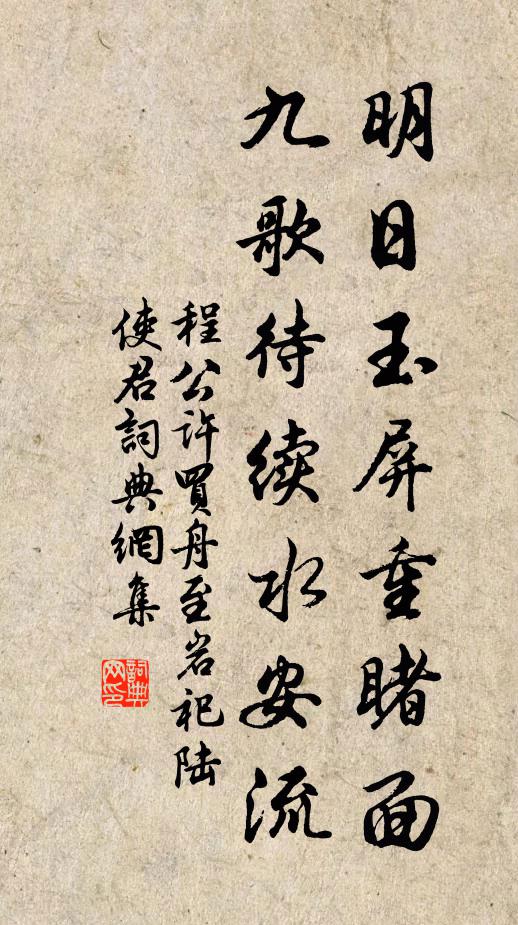 明日玉屏重睹面
九歌待续水安流
程公许買舟至岩祀陆
使君詞典網集
詞典
网印